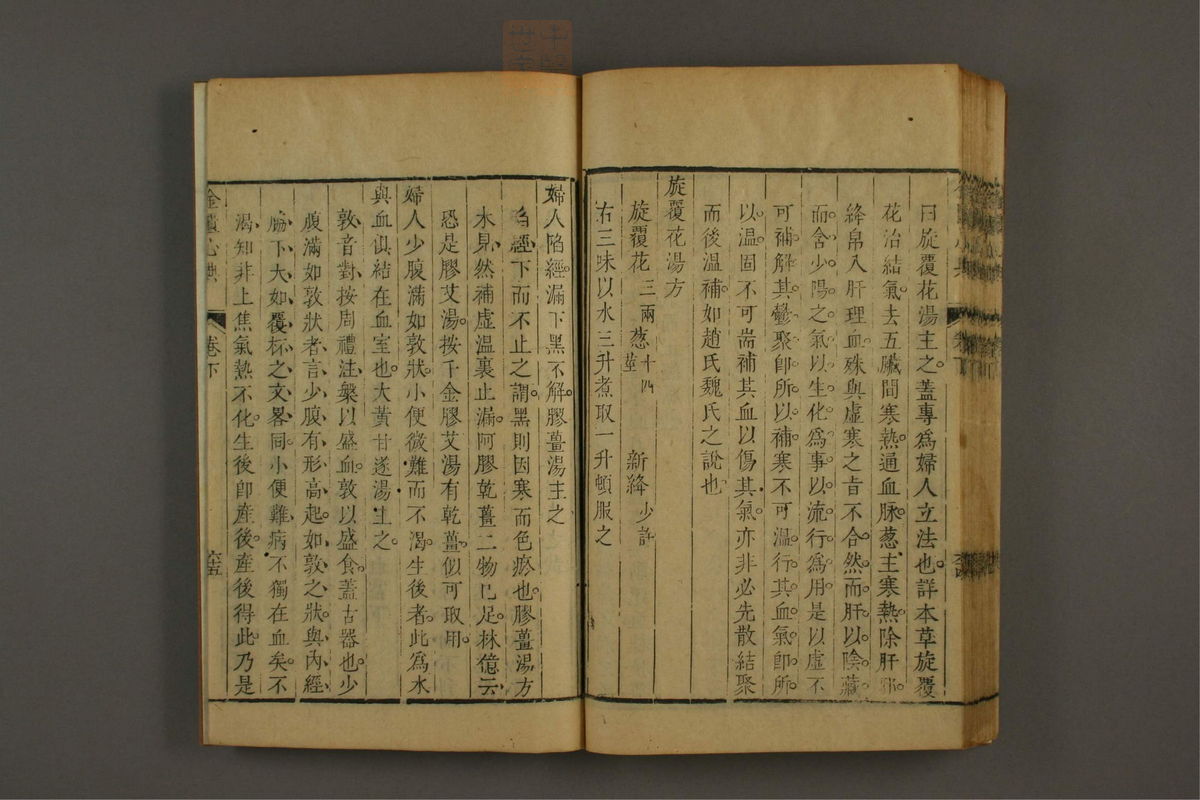 曰旋覆花湯主之蓋專為婦人立法也詳本草旋覆
花治結氣去五臟間寒熱通血脉葱主寒熱除肝邪
絳帛入肝理血殊與虛寒之旨不合然而肝以陰藏
而舍少陽之氣以生化為事以流行為用是以虛不
可補解其鬱聚卽所以補寒不可溫行其血氣卽所
以溫固不可耑補其血以傷其氣亦非必先散結聚
而後溫補如趙氏魏氏之說也
旋覆花湯方
旋覆花三兩 葱十四莖 新絳少許
右三味以水三升煮取一升頓服之
婦人陷經漏下黑不解膠薑湯主之
陷經下而不止之謂黑則因寒而色瘀也膠薑湯方
未見然補虛溫裏止漏阿膠乾薑二物已足林億云
恐是膠艾湯按千金膠艾湯有乾薑似可取用
婦人少腹滿如敦狀小便微難而不渴生後者此為水
與血俱結在血室也大黃甘遂湯主之
敦音對按周禮注槃以盛血敦以盛食蓋古器也少
腹滿如敦狀者言少腹有形高起如敦之狀與內經
脇下大如覆杯之文畧同小便難病不獨在血矣不
渴知非上焦氣熱不化生後卽産後産後得此乃是
金匱心典
卷下
六十五